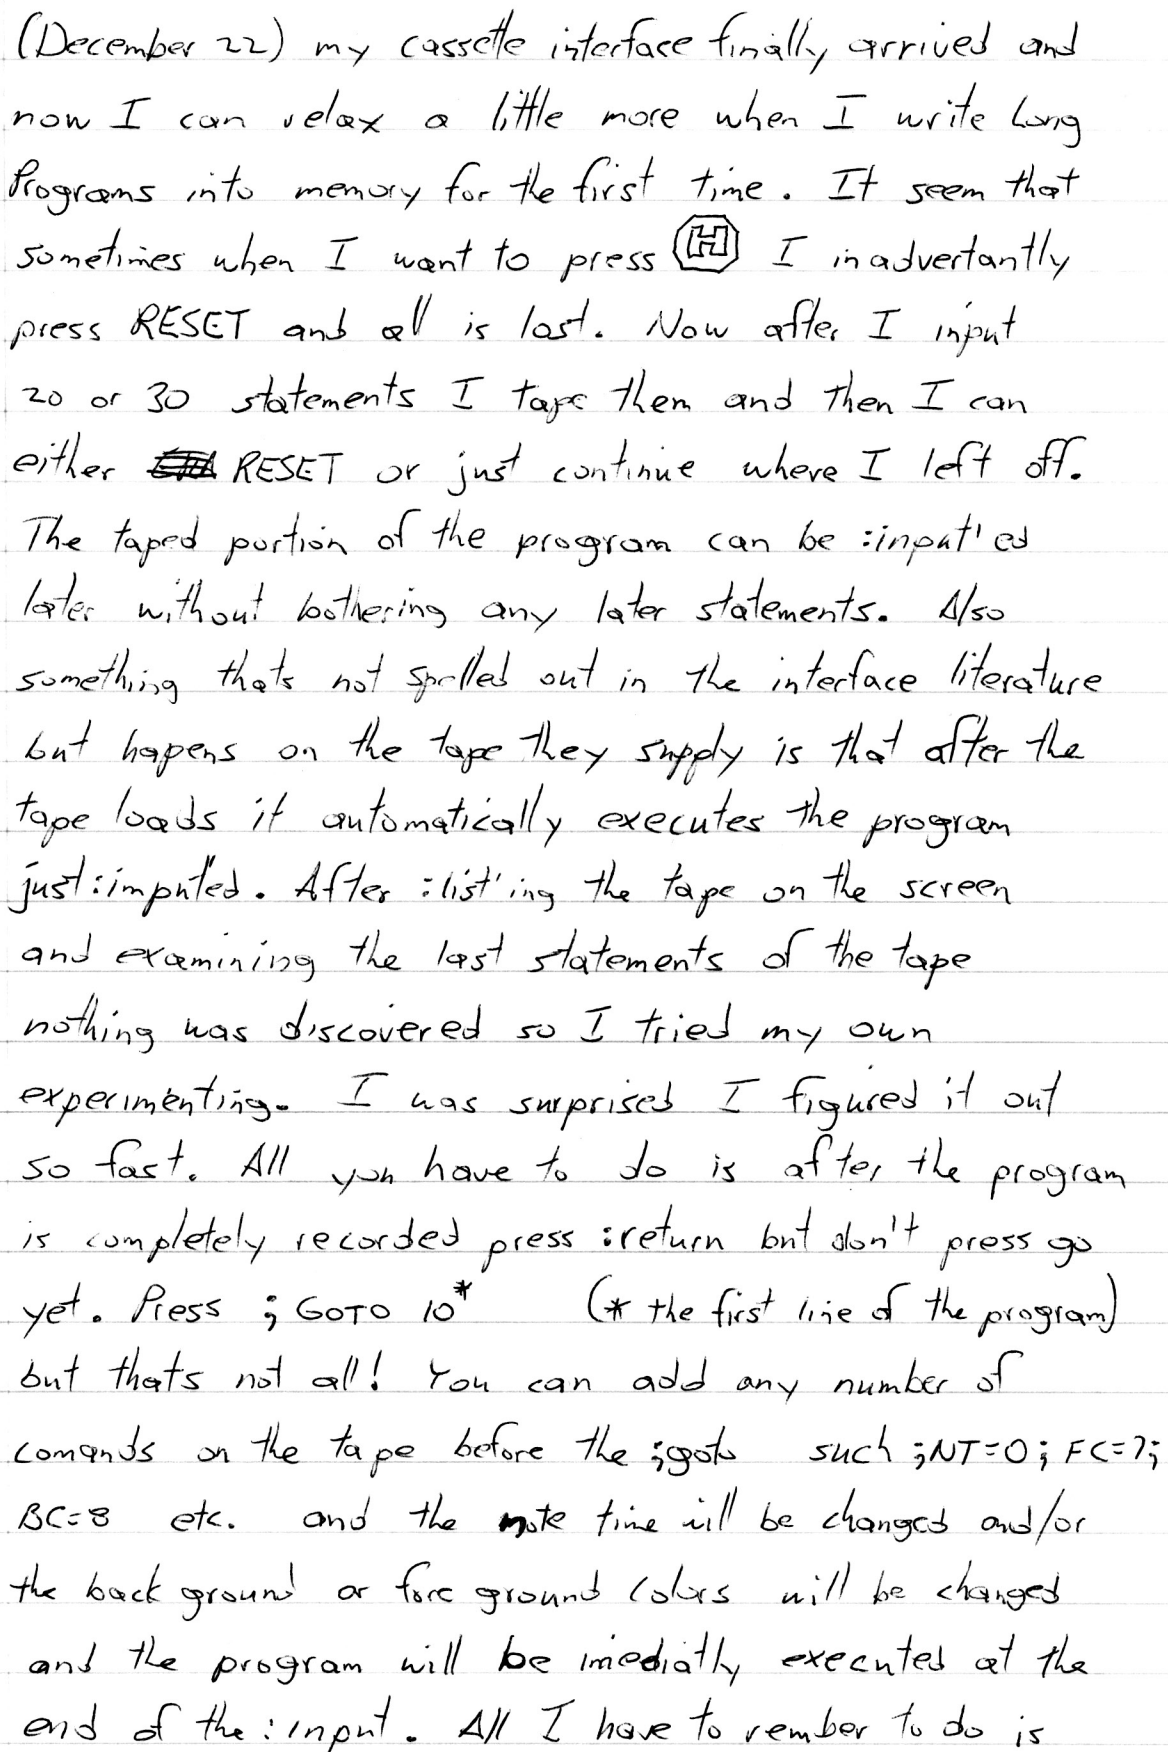 (December 22) my cassette interface finally arrived and
now I can relax a little more when I write long
Programs into memory for the first time. It seem that
sometimes when I want to press H I inadvertantly
press RESET and all is lost. Now after I input
20 or 30 statements I tape them and then I can
either RESET or just continue where I left off.
The taped portion of the program can be :input'ed
later without bothering any later statements. Also
something thats not spelled out in the interface literature
but hapens on the tape they supply is that after the
tape loads it automatically executes the program
just :imputed. After :list'ing the tape on the screen
and examining the last statements of the tape
nothing was discovered so I tried my own
experimenting. I was surprised I figured it out
so fast. All you have to do is after the program
is completely recorded press :return but don't press go
yet. Press ; GOTO 10* (* the first line of the program)
but thats not all! You can add any number of
comands on the tape before the ;goto such ;NT=0; FC=7;
BC=8 etc. and the note time will be changed and/or
the back ground or fore ground colors will be changed
and the program will be imediatly executed at the
end of the :input. All I have to rember to do is